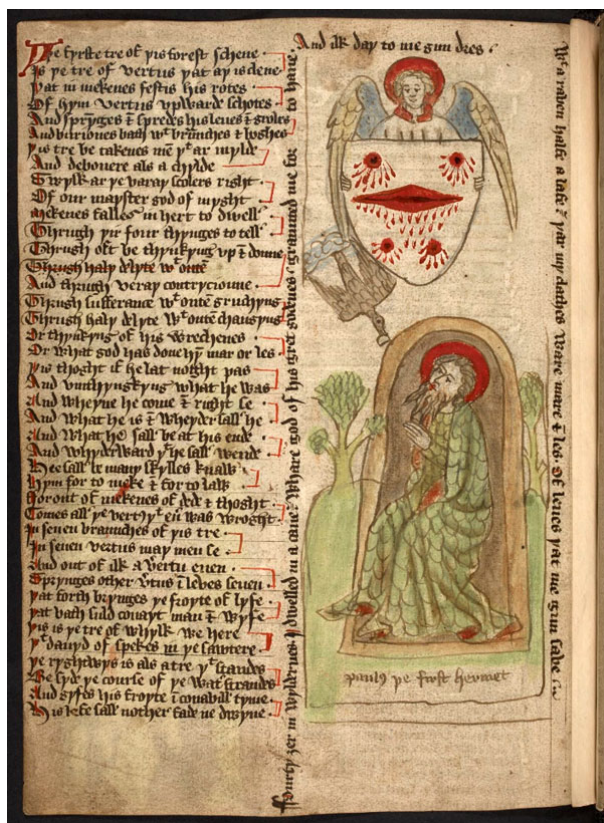 Þe fyrste tre of þis forest schene
Is þe tre of vertus þat ay is clene
Þat in mekenes festis his rotes
Of hym vertus vpwarde schotes
And sprynges & spredes his leues &
And burions bath wt braunches & boghes
Þis tre be takenes men þt ar mylde
And debonere als a chylde
Swylk ar þe varay scolers right
Of our mayster god of myght
Mekenes falles in hert to dwell
Thrugh þir four thynges to tell
Thrugh oft be thynkyng vp & doune
Thrugh haly delyte wt outē
And thrugh veray contrycioune
Thrugh sufferance wt outē gruchyng
Thrugh haly delyte wt outē chaungyng
Or thynkyng of his wrechenes
Or what god has done hym mar or les
Þis thoght if he lat noght pas
And vmthynkyng what he was
And wheyne he come & right se
And what he is & wheyder sall he
And what he sall be at his ende
And whyderward þt he sall wende
Hee sall be many skylles knaw
Hym for to meke & for to law
ffor out of mekenes of dede & thoght
Comes all þe vertus þt euer was wroght
In seuen braunches of þis tre
In seuen vertus may men se
And out of ilk a vertu euen
Sprynges other vertus ī leves seuen
Þat forth brynges þe froyte of lyfe
Þat bath suld couayt man & wyfe
Þis is þe tre of whylk we here
Þt dauyd of spekes in þe sawtere
Þe ryghtwys is als a tre þt standes
Be syde þe course of þe water strandes
And gyfes his froyte ī conabil tyme
His lefe sall nother fade ne dwyne
ffourty ȝer in wyldernes I dwelled in a caue Whare god of his gret godenes graunted me for to haue
And ilk day to me gun dres
Wt a raben halfe a lafe & þar my clathes Ware mare & les Of leues þat me gun save in
paulꝰ þe fyrst hermet